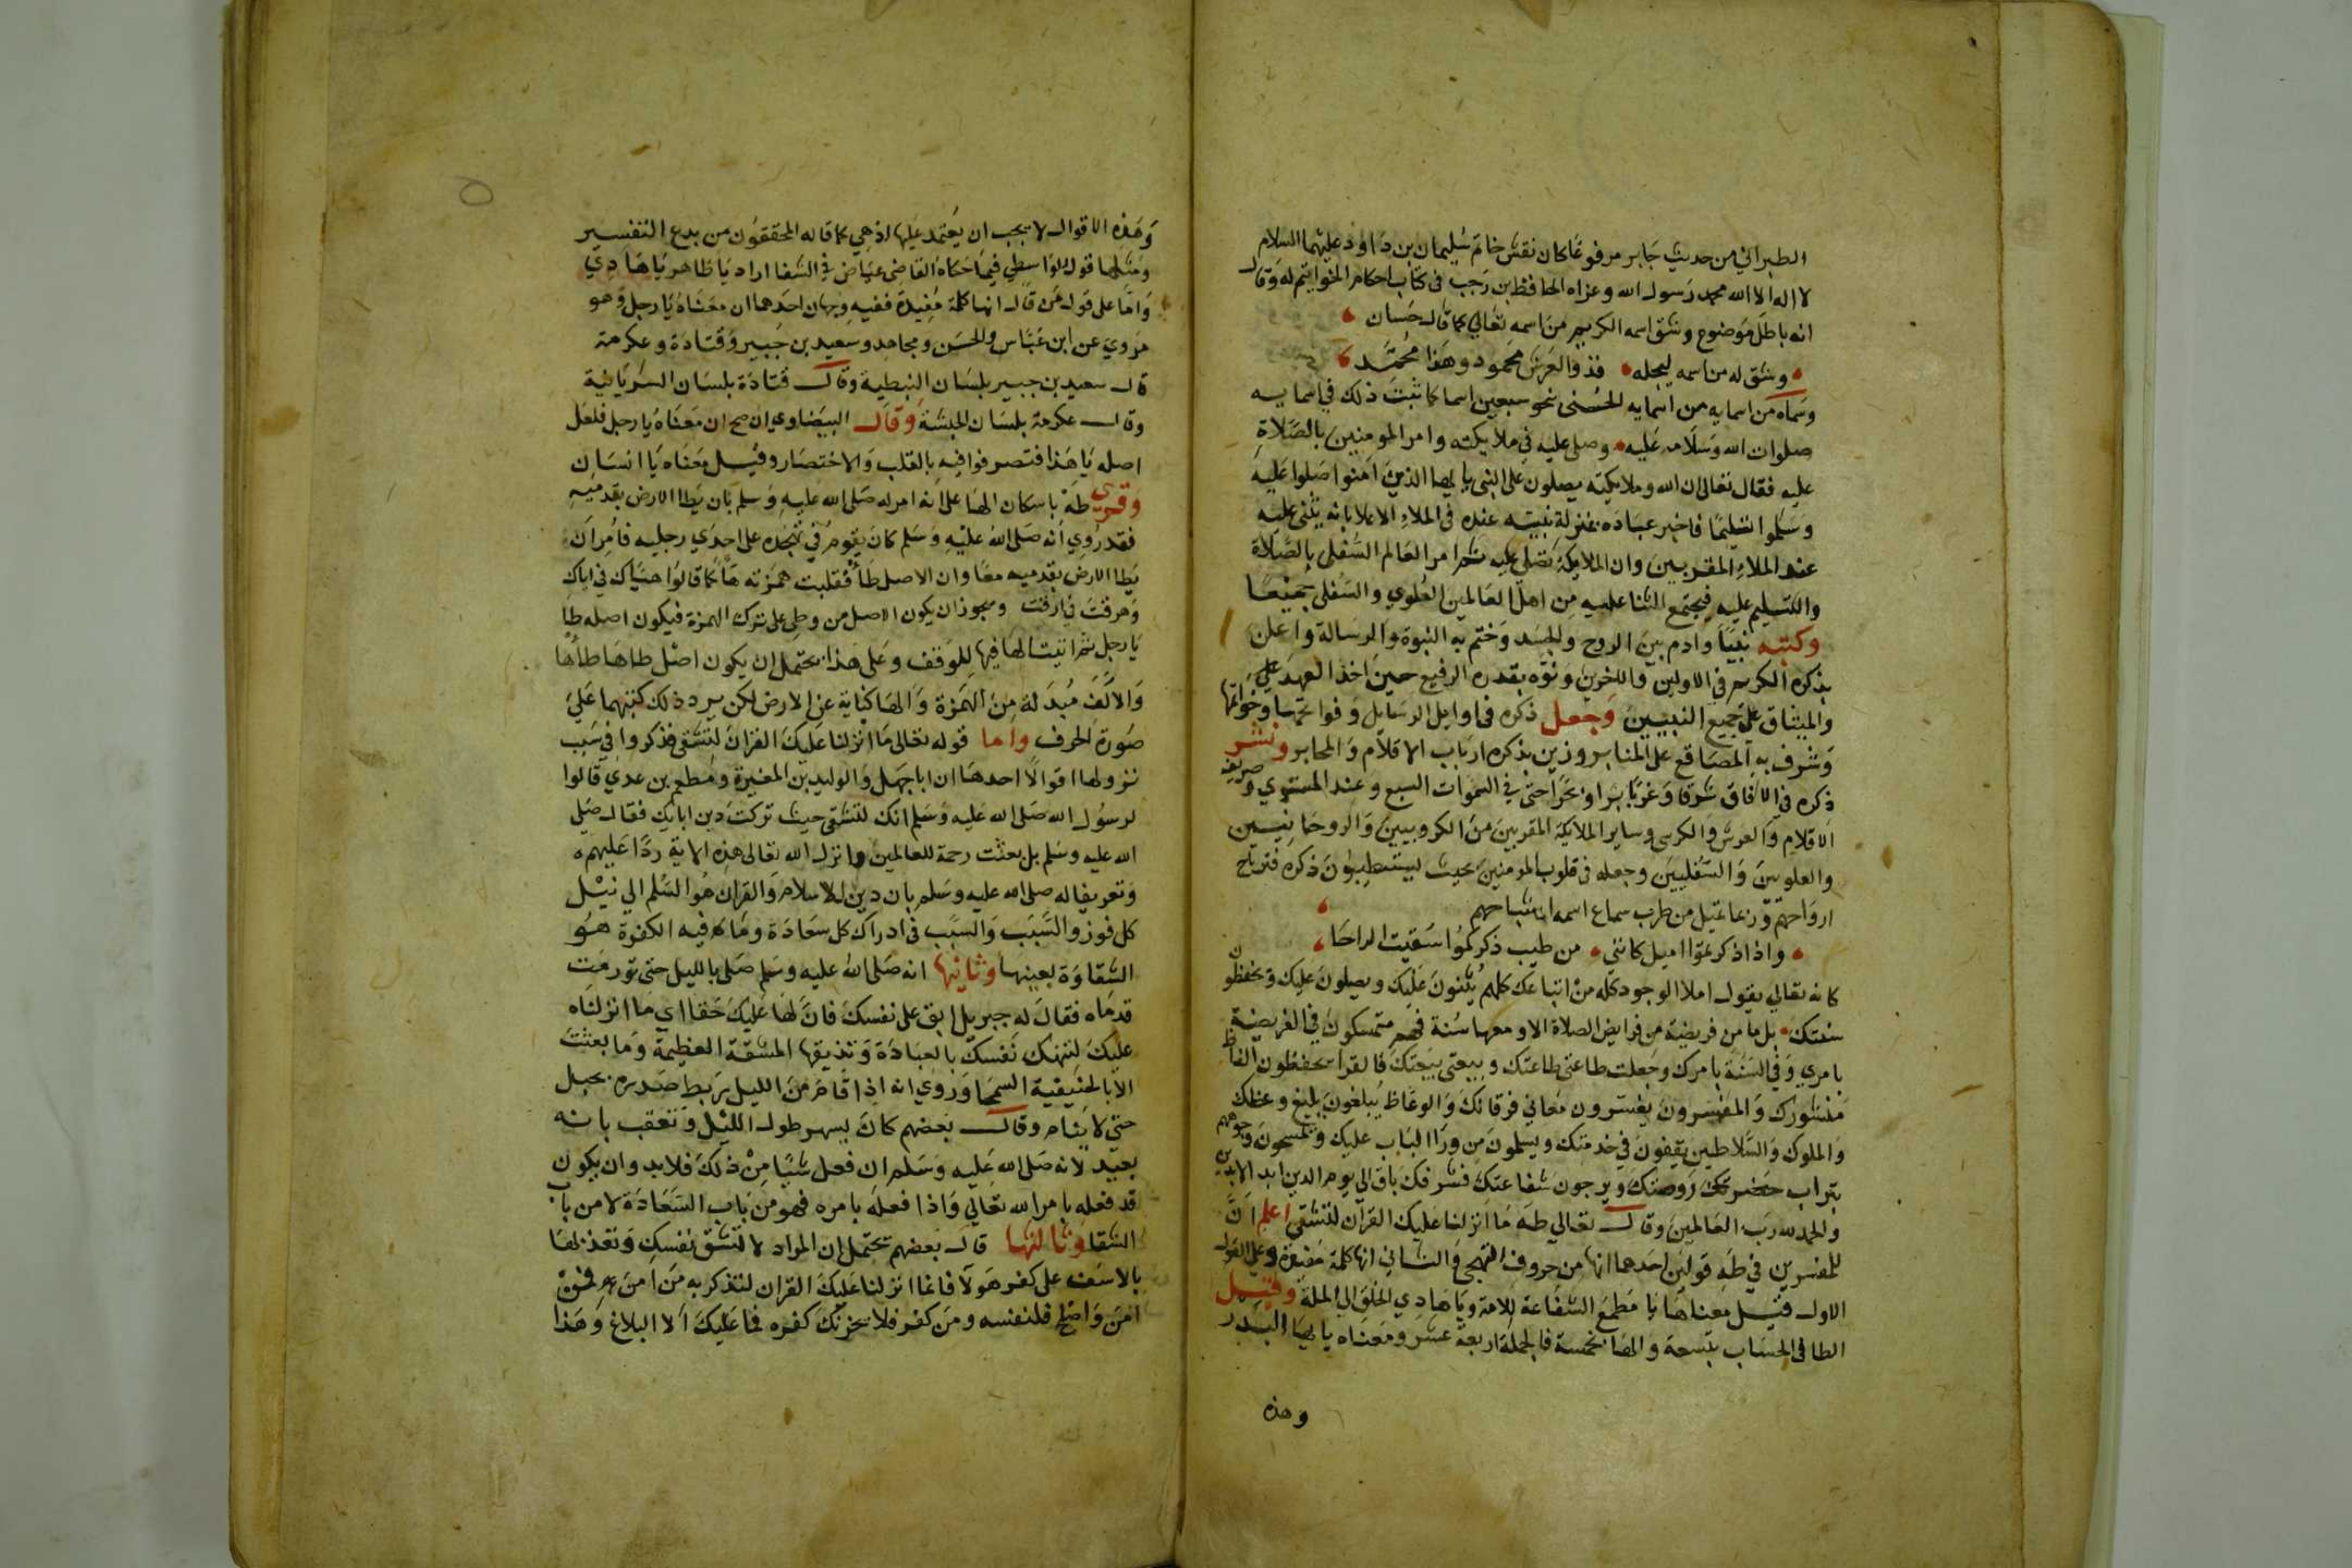 الطبراني من حديث جابر مرفوعا كان نقش خاتم سليمان بن داود عليهما السلام
لا اله الا الله محمد رسول الله وعزاه الحافظ بن رجب في كتاب احكام الخواتيم له وقال
انه باطل موضوع وشق اسمه الكريم من اسمه تعالي كما قال حسان
وشق له من اسمه ليجله فذو العرش محمود وهذا محمد
وسماه من اسمايه من اسمايه الحسنى نحو سبعين اسما كما ثبت ذلك في اسمايه
صلوات الله وسلامه عليه وصلى عليه في ملايكته وامر المومنين بالصلاة
عليه فقال تعالى ان الله وملايكته يصلون على النبي يا ايها الذين امنوا صلوا عليه
وسلموا تسليما فاخبر عباده بمنزلة نبيه عنده في الملاء الاعلا بانه يثني عليه
عند الملاء المقربين وان الملايكة تصلى عليه ثم امر العالم السفلى بالصلاة
والتسليم عليه فيجتمع الثنا عليه من اهل العالمين العلوي والسفلى جميعا
وكتبه نبيا وادم بين الروح والجسد وختم به النبوة والرسالة واعلن
بذكره الكريم في الاولين والاخرين ونوه بقدره الرفيع حين اخذ العهد علي
والميثاق على جميع النبيين وجعل ذكره في اوايل الرسايل وفواتحها وخواتمها
وشرف به المصاقع على المنابر وزين بذكره ارباب الاقلام والمحابر ونشر
ذكره في الافاق شرقا وغربا برا وبحرا حتى في السموات السبع وعند المستوي وصريف
الاقلام والعرش والكرسى وساير الملايكة المقربين من الكروبيين والروحانيين
والعلويين والسفليين وجعله في قلوب المومنين بحيث ليستطيبون ذكره فترتاح
ارواحهم وربما تميل من طرب سماع اسمه اشباحهم
واذا ذكرتموا اميل كانني من طيب ذكركموا سقيت الراحا
كانه تعالي يقول املا الوجود كله من اتباعك كلهم يثنون عليك ويصلون عليك ويحفظون
سنتك بل ما من فريضة من فرايض الصلاة الا ومعها سنة فهم متمسكون في الفريضة
بامري وفي السنة بامرك وجعلت طاعتي طاعتك وبيعتى بيعتك فالقرا يحفظون الفاظ
منشورك والمفسرون يفسرون معاني فرقانك والوعاظ يبلغون بليغ وعظك
والملوك والسلاطين يقفون في خدمتك ويسلمون من ورا الباب عليك ويمسحون وجوههم
بتراب روضتك ويرجون شفاعتك فشرفك باق الي يوم الدين ابد الابدين
والحمد لله رب العالمين وقال تعالي طه ما انزلنا عليك القران لتشقى اعلم ان
للمفسرين في طه قولين احدهما انها من حروف التهجى والثاني انها كلمة مفيدة وعلى القول
الاول فقيل معناها يا مطمع الشفاعة للامة ويا هادي الخلق الى الملة وقيل
الطا في الحساب بتسعة والها بخمسة فالجملة اربعة عشر ومعناه يا ايها البدر
وهذه
وهذه الاقوال لا يجب ان يعتمد عليها اذ هي كما قاله المحققون من بدع التفسير
ومثلها قول الواسطي فيما حكاه القاضى عياض في الشفا اراد يا طاهر يا هادي
واما على قول من قال انها كلمة مفيدة ففيه وجهان احدهما ان معناه يا رجل وهو
مروي عن ابن عباس والحسن ومجاهد وسعيد بن جبير وقتادة وعكرمة
قال سعيد بن جبير بلسان النبطية وقال قتادة بلسان السريانية
وقال عكرمة بلسان الحبشة وقال البيضاوي ان صح ان معناه يا رجل فلعل
اصله يا هذا فتصرفوا فيه بالقلب والاختصار وقيل معناه يا انسان
وقري طه باسكان الها على انه امر له صلى الله عليه وسلم بان يطا الارض بقدميه
فقد روي انه صلى الله عليه وسلم كان يقوم في تهجده على احدي رجليه فامر ان
يطا الارض بقدميه معا وان الاصل طأ فقلبت همزته هاء كما قالوا هياك في اياك
وهرقت في ارقت ويجوز ان يكون الاصل من وطى على ترك الهمزة فيكون اصله طا
يا رجل ثم اثبت الها فيها للوقف وعلى هذا يحتمل ان يكون اصل طاها طأها
والالف مبدلة من الهمزة والها كناية عن الارض لكن يرد ذلك كتبهما علي
صورة الحرف واما قوله تعالى ما انزلنا عليك القران لتشقى فذكروا في سبب
نزولها اقوالا احدها ان ابا جهل والوليد بن المغيرة ومطعم بن عدي قالوا
لرسول الله صلى الله عليه وسلم انك لتشقى حيث تركت دين ابايك فقال صلي
الله عليه وسلم بل بعثت رحمة للعالمين وانزل الله تعالى هذه الاية ردا عليهم
وتعريفا له صلى الله عليه وسلم بان دين الاسلام والقران هو السلم الي نيل
كل فوز والسبب والسبب في ادراك كل سعادة وما فيه الكفرة هو
الشقاوة بعينها وثانيها انه صلى الله عليه وسلم صلى بالليل حتى تورمت
قدماه فقال له جبريل ابق على نفسك فان لها عليك حقا اي ما انزلناه
عليك لتنهك نفسك بالعبادة وتذيقها المشقة العظيمة وما بعثت
الا بالحنيفية السمحا وروي انه اذا قام من الليل يربط صدره بحبل
حتى لا ينام وقال بعضهم كان يسهر طول الليل وتعقب بانه
بعيد لانه صلى الله عليه وسلم ان فعل شيا من ذلك فلا بد وان يكون
قد فعله بامر الله تعالي واذا فعله بامره فهو من باب السعادة لا من باب
الشقا وثالثها قال بعضهم يحتمل ان المراد لا تشق نفسك وتعذبها
بالاسف على كفر هولا فانما انزلنا عليك القران لتذكر به من امن فمن
امن واصلح فلنفسه ومن كفر فلا يحزنك كفره فما عليك الا البلاغ وهذا